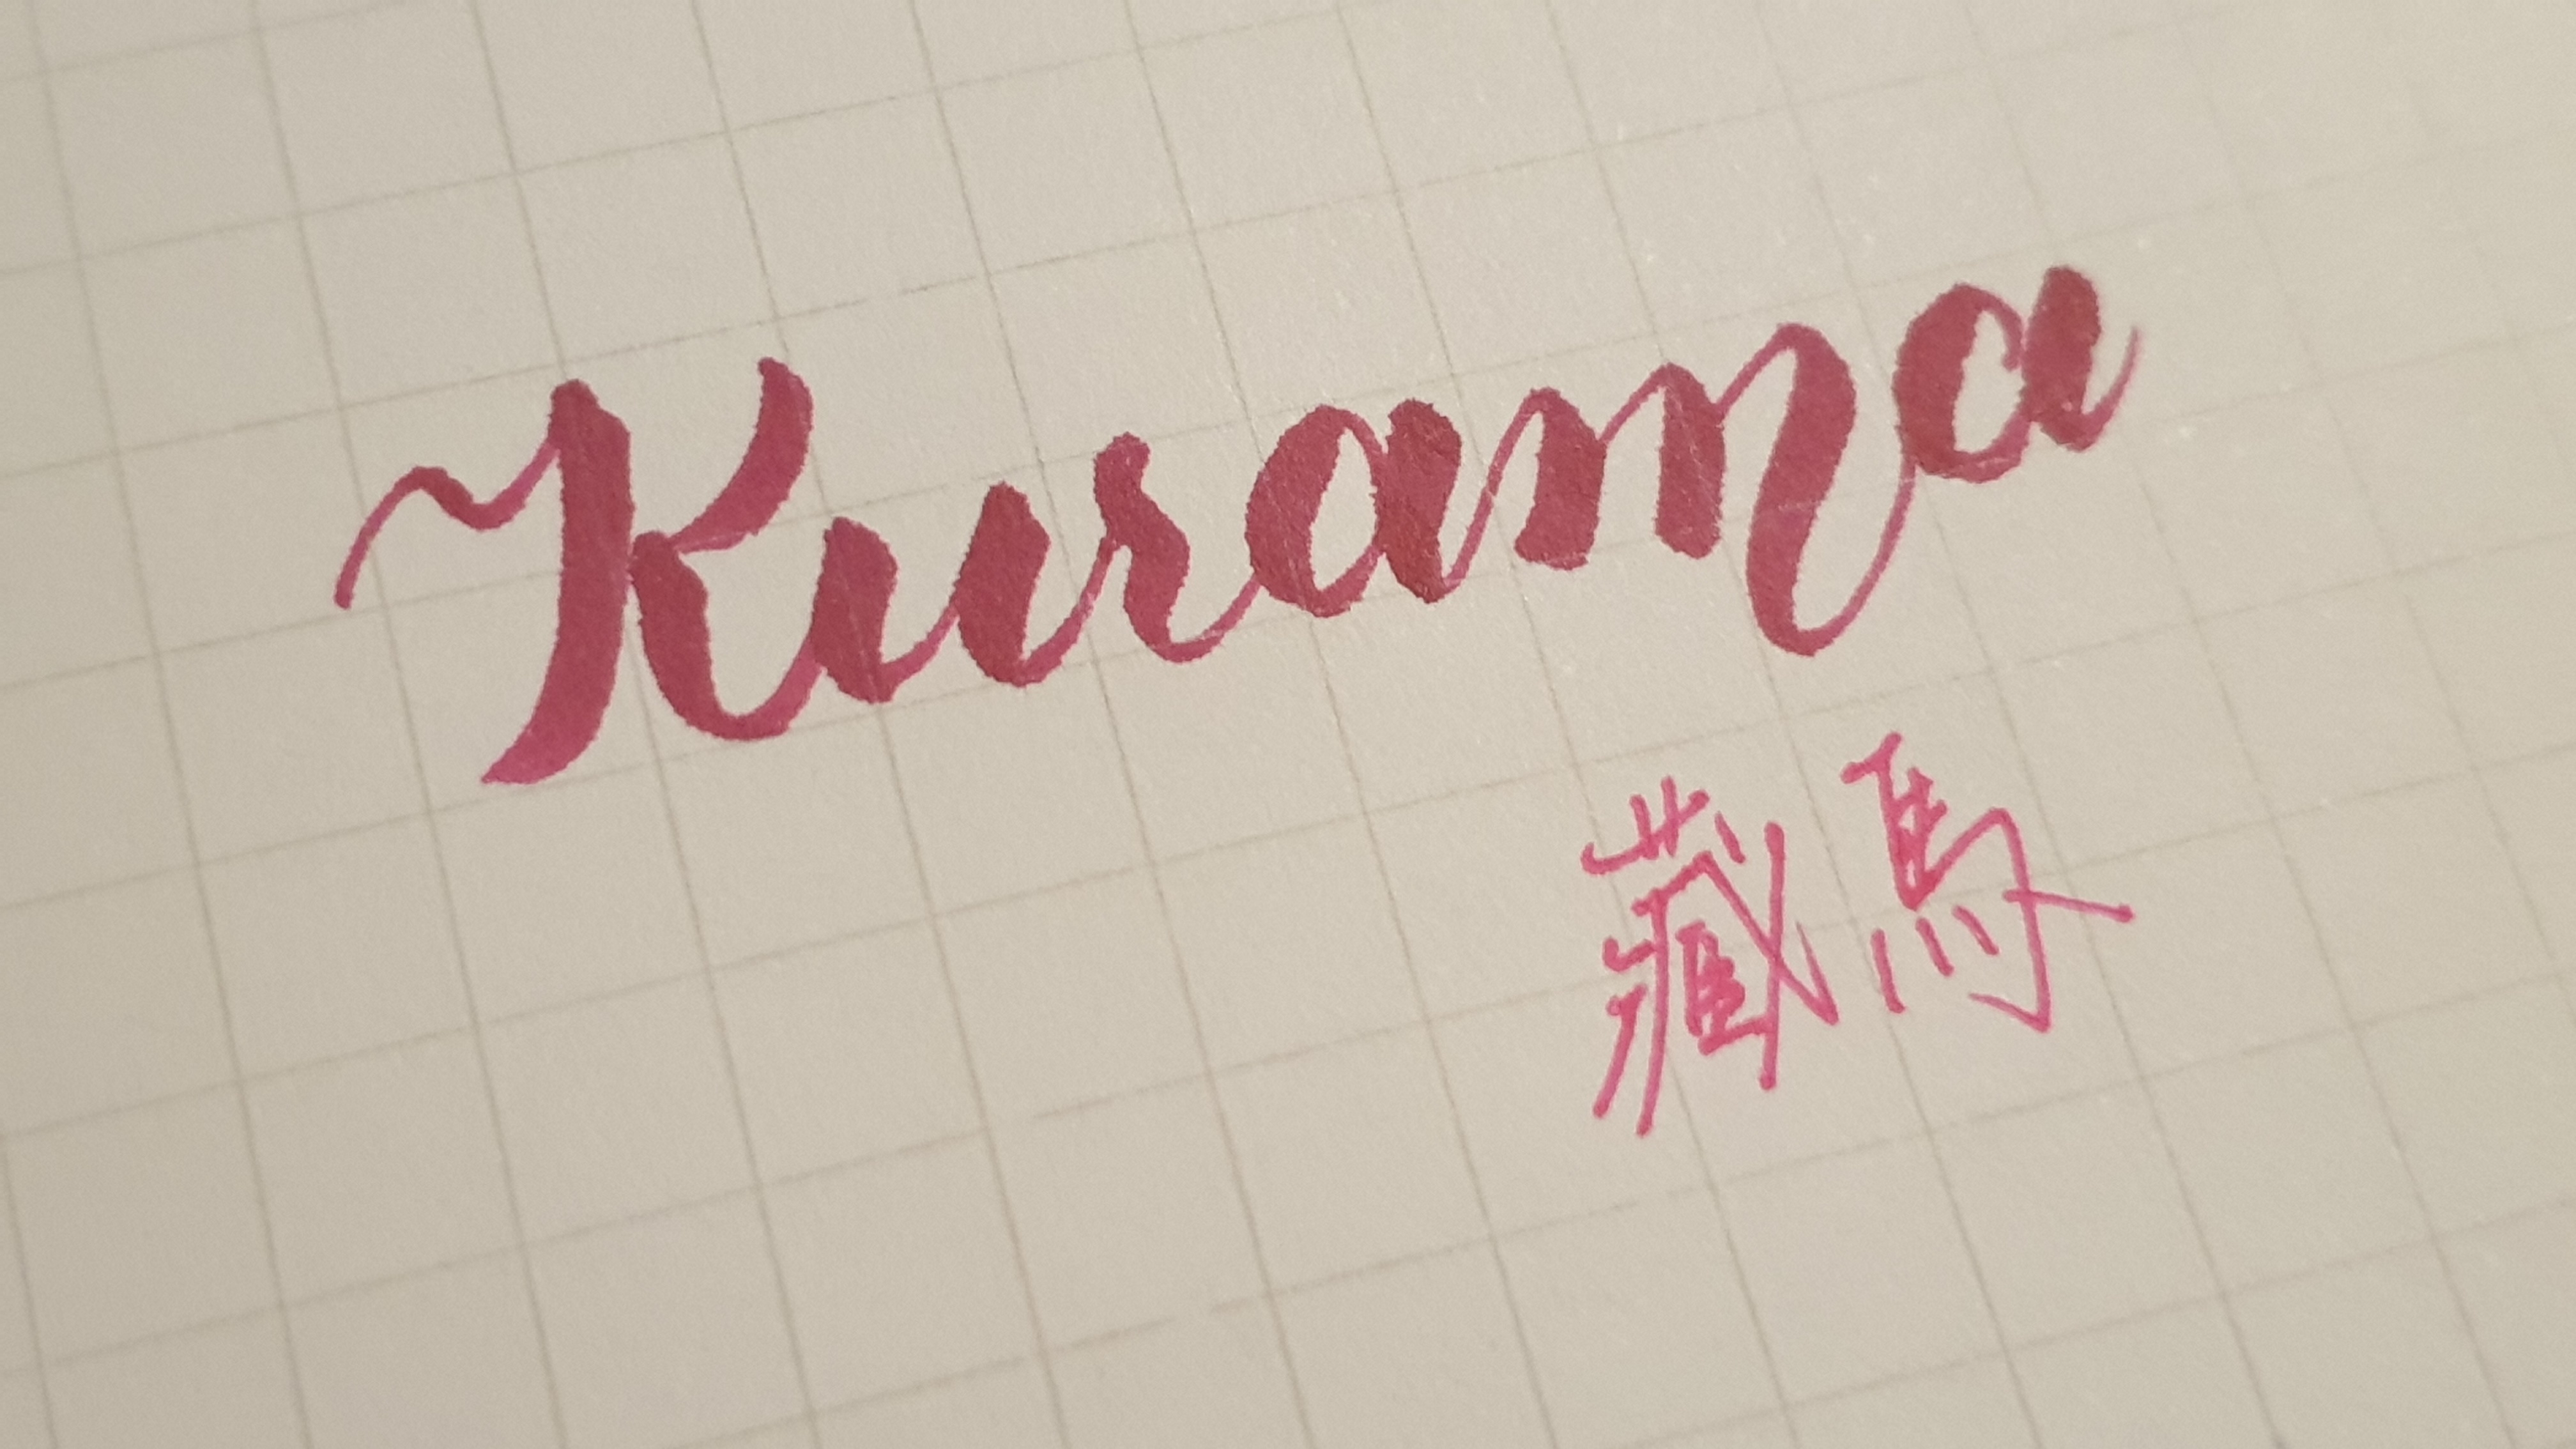 Kurama
藏馬